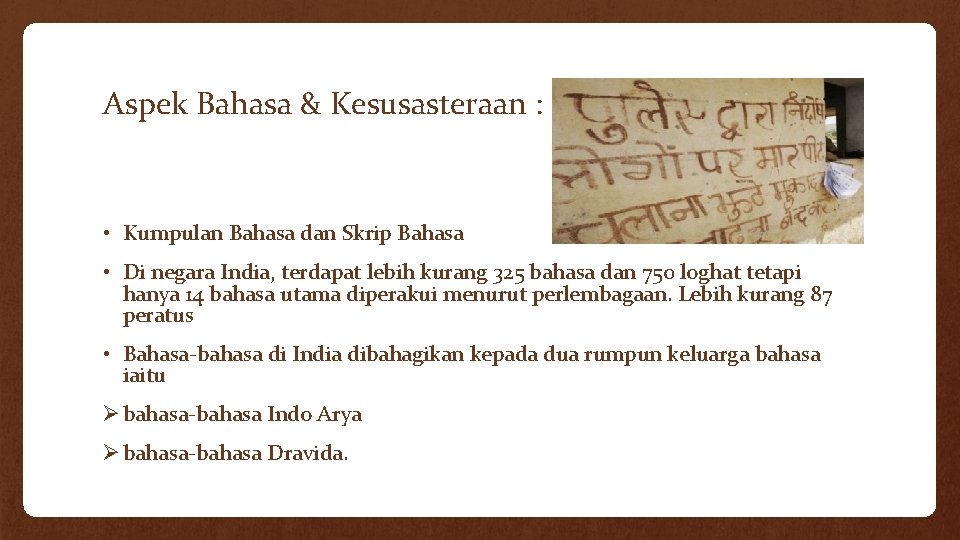 Aspek Bahasa & Kesusasteraan :
पुलिस द्वारा निर्दोष
लोगों पर मार पीट
चलाना झुठे
• Kumpulan Bahasa dan Skrip Bahasa
• Di negara India, terdapat lebih kurang 325 bahasa dan 750 loghat tetapi
hanya 14 bahasa utama diperakui menurut perlembagaan. Lebih kurang 87
peratus
• Bahasa-bahasa di India dibahagikan kepada dua rumpun keluarga bahasa
iaitu
➢ bahasa-bahasa Indo Arya
➢ bahasa-bahasa Dravida.